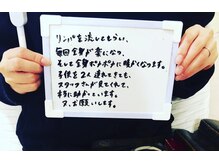 リンパを流してもらい、
毎回全身が楽になり、
そして全身ポカポカに暖かくなります。
子供を2人連れてきても、
スタッフさんが見てくれて、
本当に助かっています。
又、お願いします。